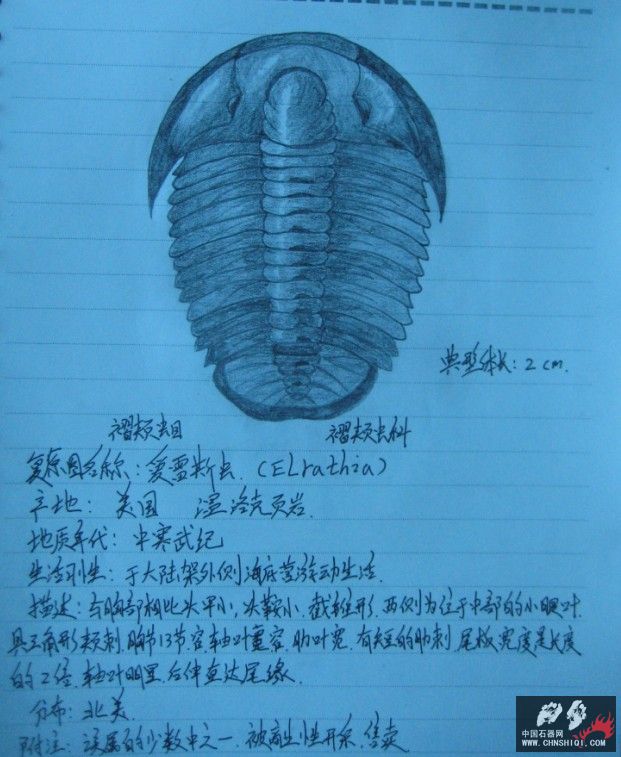 典型体长：2 cm.
褶颊虫目 褶颊虫科
复原图名称：爱雷斯虫.（ELrathia）
产地：美国 温洛克页岩.
地质年代：中寒武纪
生活习性：于大陆架外侧海底营游动生活.
描述：与胸部相比头甲小，头鞍小，截锥形，两侧为位于中部的小眼叶
具三角形颊刺，胸节13节，轴叶 ，肋叶宽，有短的肋刺，尾板宽度是长度
的2倍，轴叶明显，后伸直达尾缘.
分布：北美.
附注：该属的少数中之一，被商业性开采，售卖
中国石器网
WWW.CHNSHIQI.COM